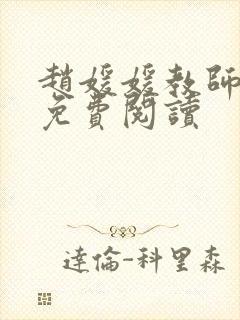 趙媛媛教師
免費閱讀
達倫-科里森